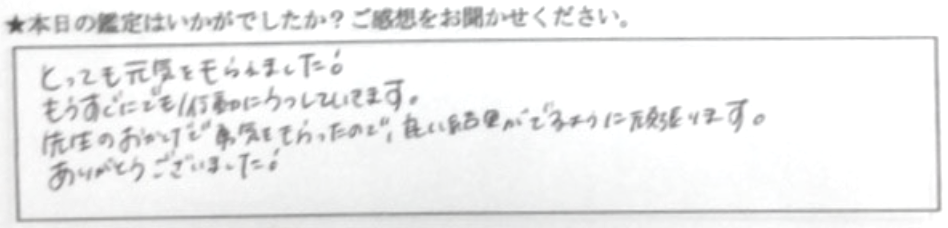 ★本日の鑑定はいかがでしたか？ご感想をお聞かせください。
とっても元気をもらえました！
もうすぐにでも行動にうつしていきます。
先生のおかげで勇気をもらったので、良い結果がでるように頑張ります。
ありがとうございました！